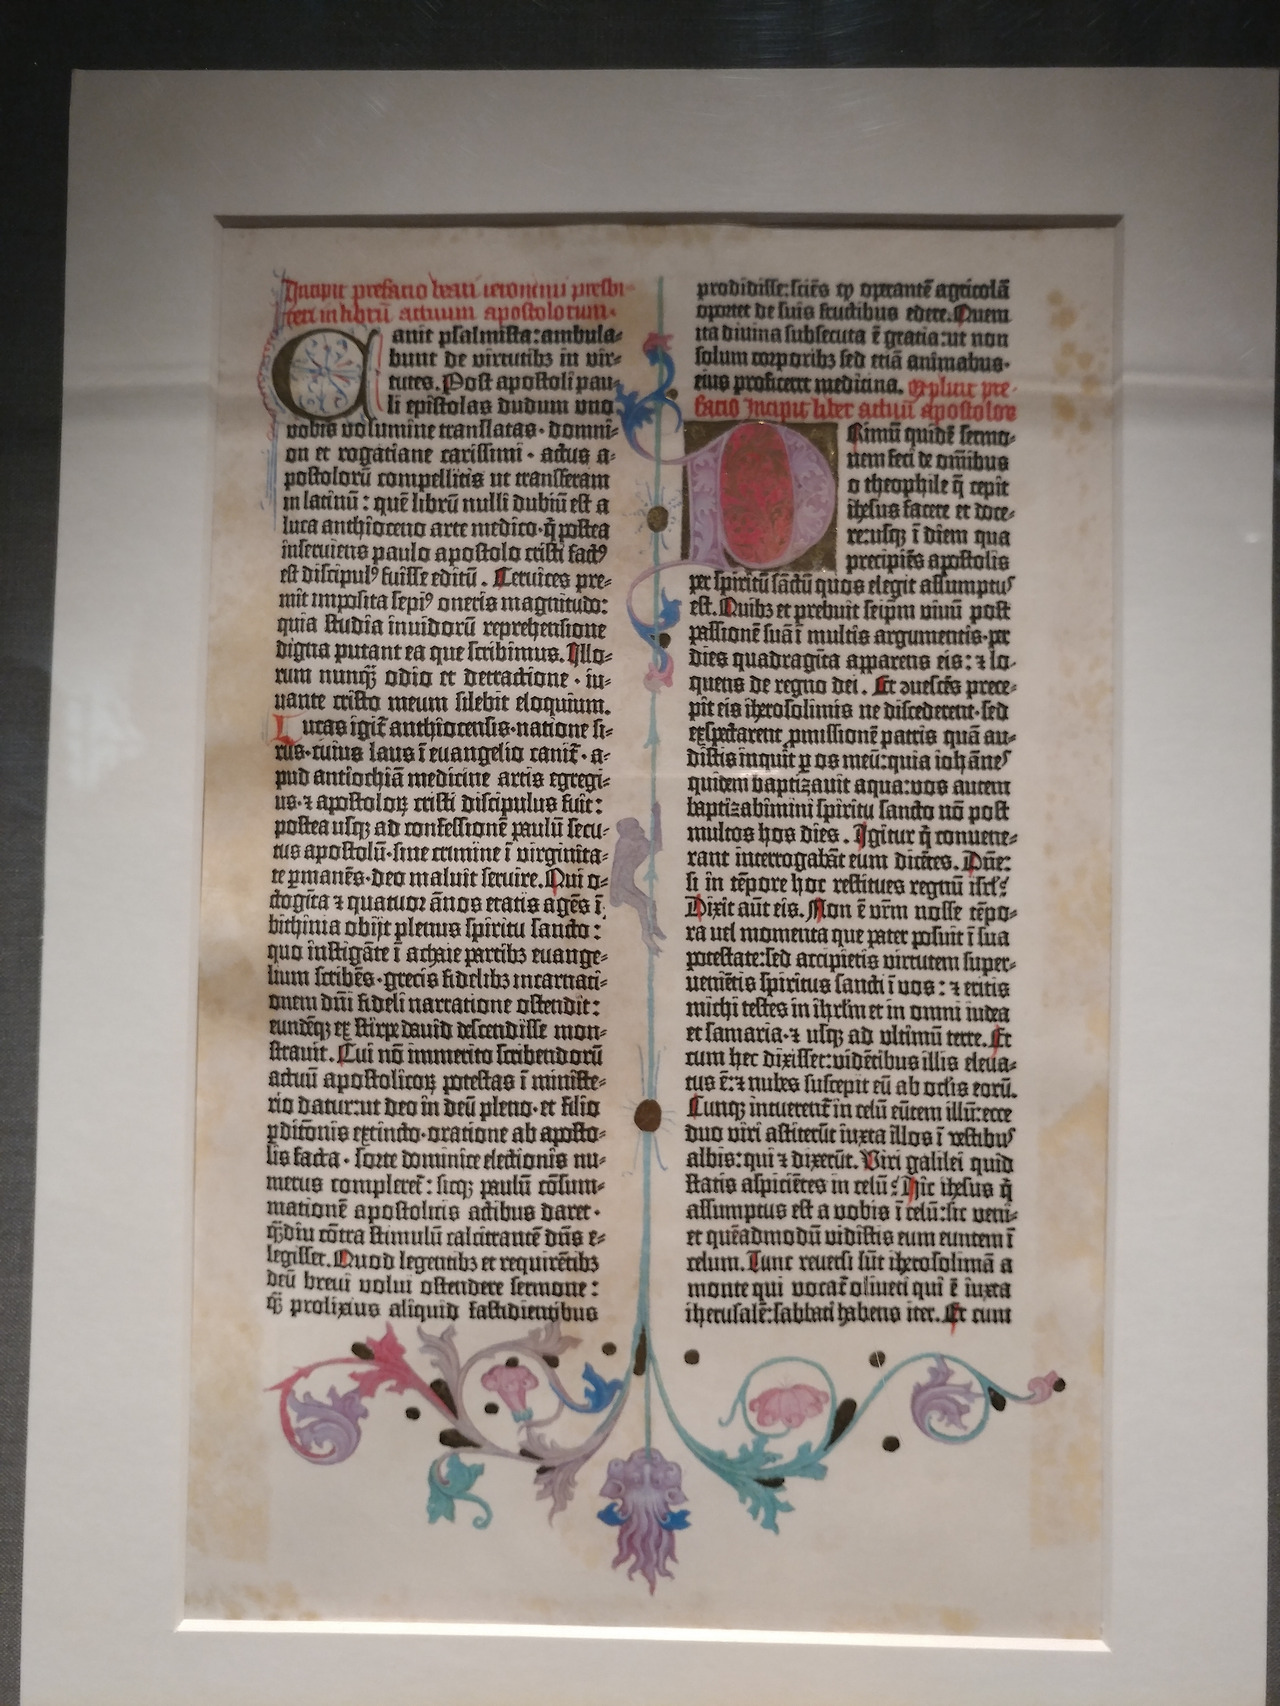 Incipit prefacio beati ieronimi presbi-
teri in librū actuum apostolorum.
Canit psalmista: ambula-
bunt de virtutibꝫ in vir-
tutes. Post apostoli pau-
li epistolas dudum uno
vobis volumine translatas· domni-
on et rogatiane carissimi · actus a-
postolorū compellitis ut transferam
in latinū : quē librū nulli dubiū est a
luca anthioceno arte medico·q̄ postea
inserviens paulo apostolo cristi factꝰ
est discipulꝰ fuisse editū . Cervices pre-
mit imposita sepiꝰ oneris magnitudo:
quia studia invidorū reprehensione
digna putant ea que scribimus. Illo-
rum nunqꝫ odio et detractione · iu-
vante cristo meum silebit eloquium.
Lucas igit̄ anthiocensis·natione si-
rus·cuius laus ī euangelio canit̄ · a-
pud antiochiā medicine artis egregi-
us·⁊ apostoloꝝ cristi discipulus fuit:
postea usqꝫ ad confessionē paulū secu-
tus apostolū·sine crimine ī virginita-
te ꝑmanēs·deo maluit servire. Qui o-
ctogīta ⁊ quatuor ānos etatis agēs ī
bithinia obijt plenus spiritu sancto :
quo instigāte ī achaie partibꝫ euange-
lium scribēs·grecis fidelibꝫ incarnati-
onem dn̄i fideli narratione ostendit:
eundēqꝫ ex stirpe dauid descendisse mon-
stravit. Cui nō immerito scribendorū
actuū apostolicoꝝ potestas ī ministe-
rio datur:ut deo in deū pleno·et filio
ꝑditonis extincto·oratione ab aposto-
lis facta · sorte dominice electionis nu-
merus compleret̄ : sicqꝫ paulū cōsum-
mationē apostolicis actibus daret ·
qꝫdiu cōtra stimulū calcitrantē dn̄s e-
legisset. Quod legentibꝫ et requirētibꝫ
deū breui volui ostendere sermone :
qꝫ prolixius aliquid fastidientibus
prodidisse:sciēs ꝙ operantē agricolā
oportet de suis fructibus edere. Quem
ita divina subsecuta ē gratia:ut non
solum corporibꝫ sed etiā animabus·
eius proficeret medicina. Explicit pre-
facio Incipit liber actuū apostoloꝝ
Primū quidē sermo-
nem feci de om̄ibus
o theophile q̄ cepit
ihesus facere et doce-
re:usqꝫ ī diem qua
precipiēs apostolis
per spiritū sāctū quos elegit assumptus
est. Quibꝫ et prebuit seip̄m vivū post
passionē suā ī multis argumentis·per
dies quadragīta apparens eis: ⁊ lo-
quens de regno dei . Et ↄuescēs prece-
pit eis iherosolimis ne discederent·sed
exspectarent ꝓmissionē patris quā au-
distis inquit ꝑ os meū:quia iohānes
quidem baptizauit aqua:vos autem
baptizabimini spiritu sancto nō post
multos hos dies . Igitur q̄ convene-
rant interrogabāt eum dicētes. Dn̄e:
si in tēpore hoc restitues regnū isrl̄?
Dixit aūt eis. Non ē vr̄m nosse tēpo-
ra vel momenta que pater posuit ī sua
potestate:sed accipietis virtutem super-
venietis spiritus sancti ī vos : ⁊ eritis
michi testes in ihrl̄m et in omni iudea
et samaria·⁊ usqꝫ ad ultimū terre. Et
cum hec dixisset:vidētibus illis eleva-
tus ē:⁊ nubes suscepit eū ab ocl̄is eorū.
Cunqꝫ intuerent̄ in celū eūtem illū:ecce
duo viri astiterūt iuxta illos ī vestibus
albis:qui ⁊ dixerūt. Viri galilei quid
statis aspiciētes in celū? Hic ihesus q̄
assumptus est a vobis ī celū:sic veni-
et quēadmodū vidistis eum euntem ī
celum. Tunc reversi sūt iherosolimā a
monte qui vocat̄ oliveti qui ē iuxta
iherusalē:sabbati habens iter. Et cum